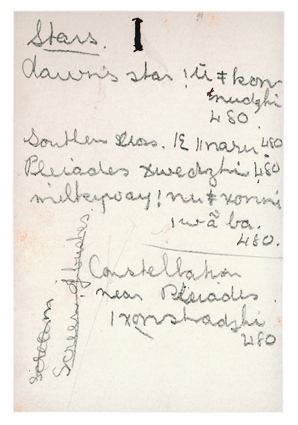 Stars. I
dawn's star ! ũ ǂ kon
mudzhi
480
Southern Cross. !E || naru 480
Pleiades xwedzhi 480
milkyway ! nu ǂ xonni
! wã ba.
480.
Constellation
near Pleiades.
! xonshadzhi
480
Screen of bushes.